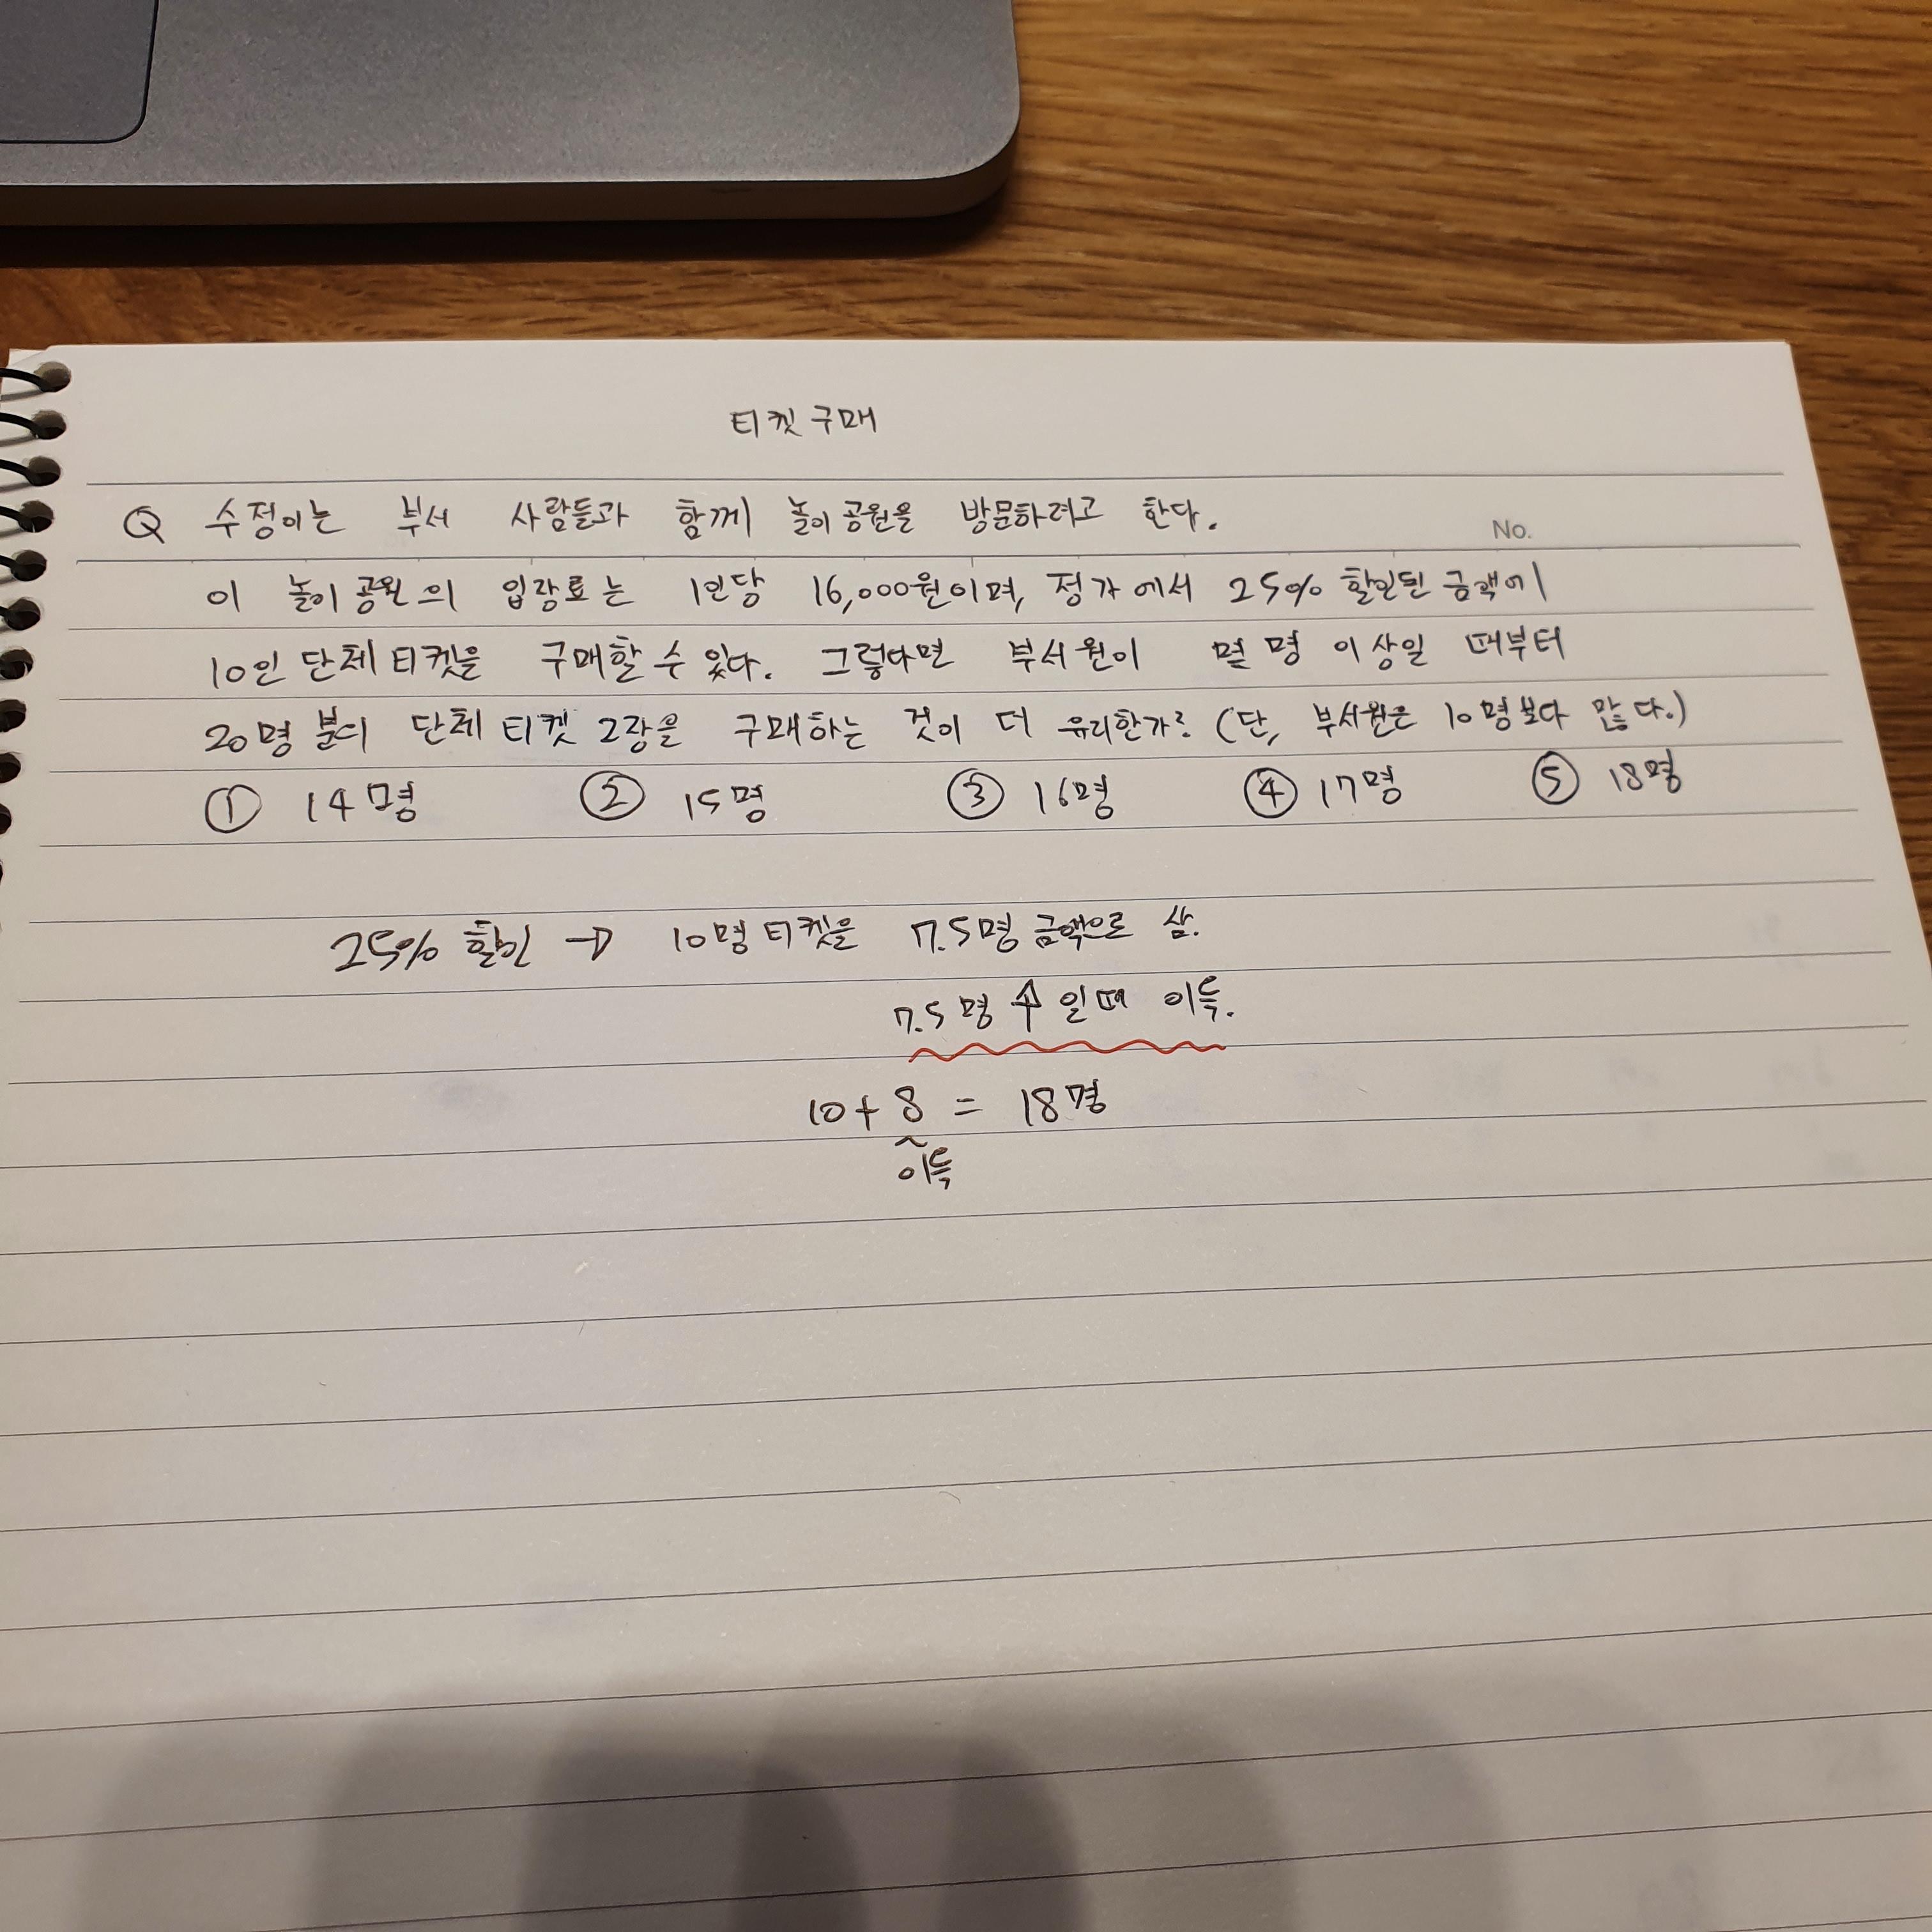 티켓 구매
Q 수정이는 부서 사람들과 함께 놀이공원을 방문하려고 한다.
No.
이 놀이공원의 입장료는 1인당 16,000원이며, 정가에서 25% 할인된 금액에
10인 단체 티켓을 구매할 수 있다. 그렇다면 부서원이 몇 명 이상일 때부터
20명 분의 단체 티켓 2장을 구매하는 것이 더 유리한가? (단, 부서원은 10명보다 많다.)
① 14명 ② 15명 ③ 16명 ④ 17명 ⑤ 18명
25% 할인 → 10명 티켓을 7.5명 금액으로 삼.
7.5명 ↑ 일때 이득.
10+8 = 18명
이득